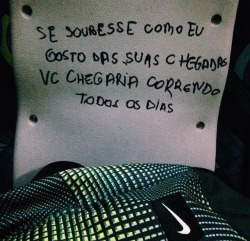 SE SOUBESSE COMO EU
GOSTO DAS SUAS CHEGADAS
VC CHEGARIA CORRENDO
TODOS OS DIAS